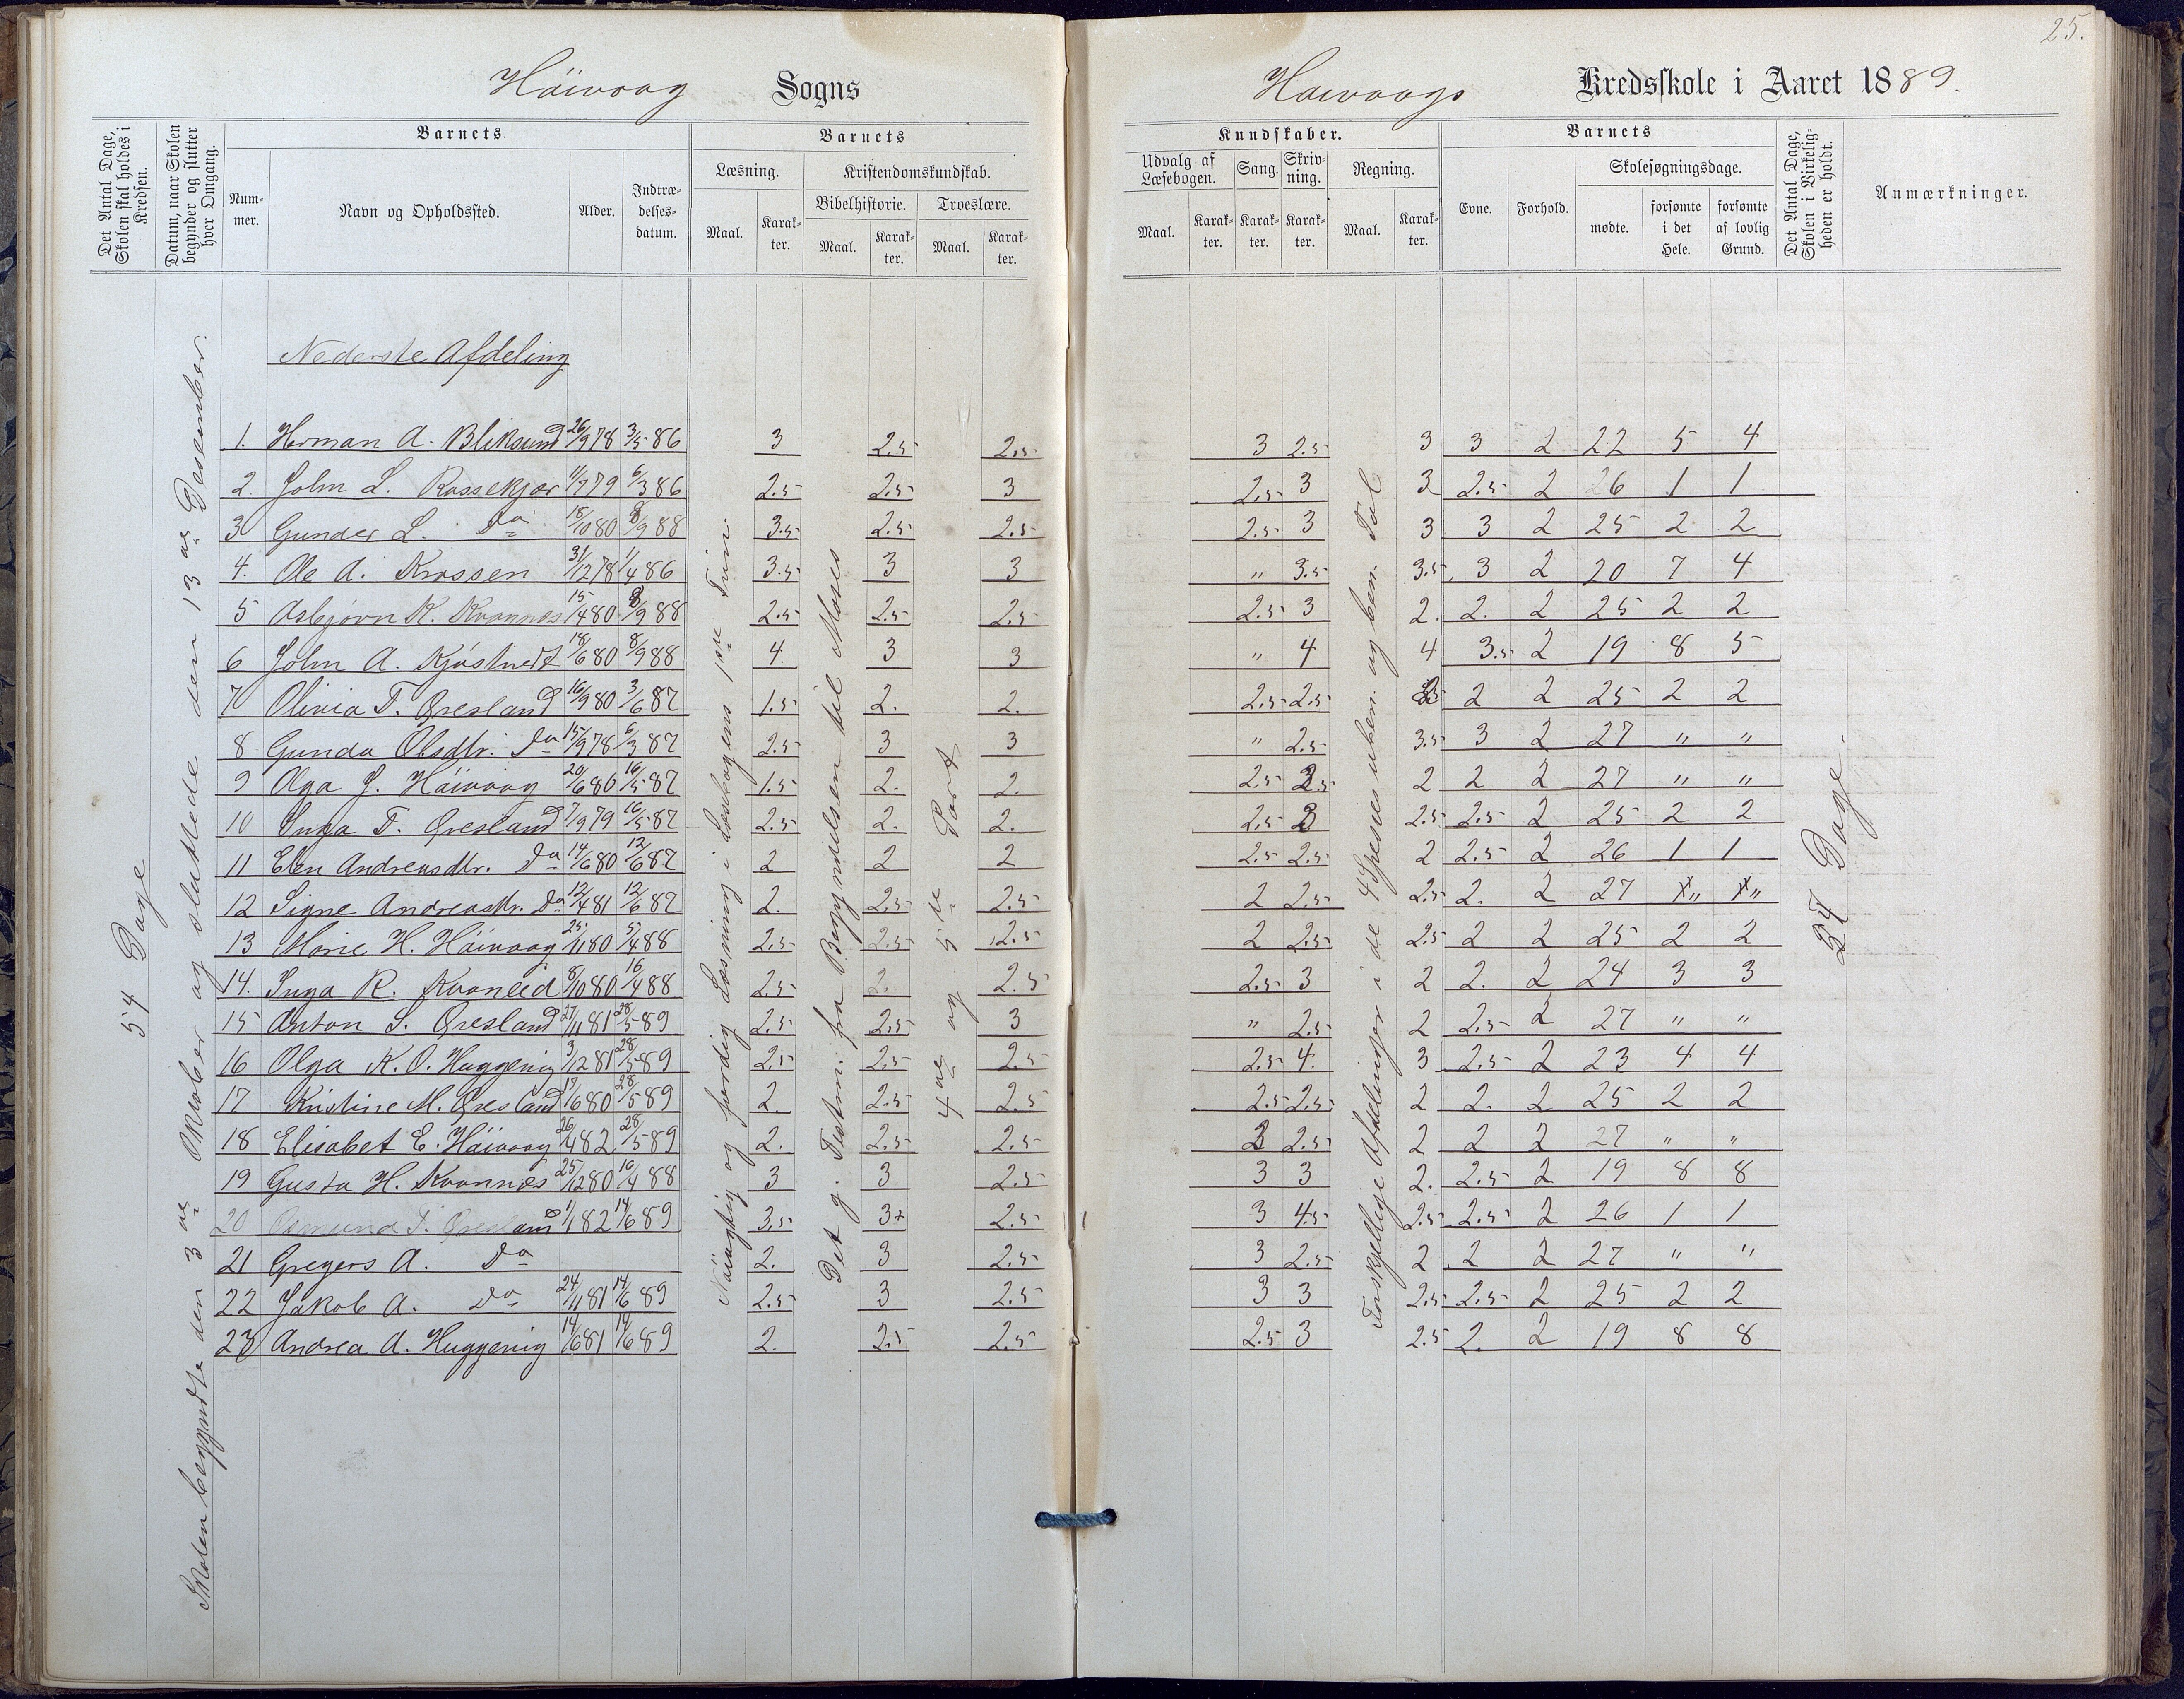 25.
Häivaag Sogns
Haivaags Kredsskole i Aaret 1889.
Det Antal Dage, Skolen skal holdes i Kredsen.
Datum, naar Skolen begynder og slutter hver Omgang.
Barnets
Num-
mer.
Navn og Opholdssted.
Alder.
Indtræ-
delses-
datum.
Barnets
Læsning.
Kristendomskundskab.
Bibelhistorie.
Troeslære.
Maal.
Karak-
ter.
Maal.
Karak-
ter.
Maal.
Karak-
ter.
Kundskaber.
Udvalg af
Læsebogen.
Sang.
Skriv-
ning.
Regning.
Maal.
Karak-
ter.
Karak-
ter.
Karak-
ter.
Maal.
Karak-
ter.
Barnets
Evne.
Forhold.
Skolesøgningsdage.
mødte.
forsømte
i det
Hele.
forsømte
af lovlig
Grund.
Det Antal Dage, Skolen i Virkelig-
heden er holdt.
Anmærkninger.
54 Dage
Skolen begyndte den 3die Oktober og sluttede den 13de Desember.
Nøiagtig og færdig Læsning i Læsebogens 1ste Trin
Det g. Testm. fra Begyndelsen til Moses
4de og 5te Part
Forskjellige Afdelinger i de 4 Spesies uben. og ben. Tal
27 Dage.
Nederste Afdeling
1. Herman A. Bliksund 26/9 78 3/5 86 3 2.5 2.5 3 2.5 3 3 2 22 5 4
2. John L. Rossekjær 11/7 79 6/3 86 2.5 2.5 3 2.5 3 3 2.5 2 26 1 1
3 Gunder L. Do 18/10 80 8/9 88 3.5 2.5 2.5 2.5 3 3 3 2 25 2 2
4. Ole A. Krossen 31/12 78 1/4 86 3.5 3 3 " 3.5 3.5 3 2 20 7 4
5 Asbjørn K. Kvannes 15/4 80 8/9 88 2.5 2.5 2.5 2.5 3 2. 2. 2 25 2 2
6 John A. Kjøstvedt 18/6 80 8/9 88 4. 3 3 " 4 4 3.5 2 19 8 5
7 Olivia T. Øresland 16/9 80 3/6 87 1.5 2. 2. 2.5 2.5 2 2 25 2 2
8 Gunda Olsdtr. Do 15/9 78 6/3 87 2.5 3 3 " 2.5 3.5 3 2 27 " "
9 Olga J. Häivaag 20/6 80 16/5 87 1.5 2. 2. 2.5 2.5 2 2 2 27 " "
10 Inga T. Øresland 7/9 79 16/5 87 2.5 2. 2. 2.5 3 2.5 2.5 2 25 2 2
11 Elen Andreasdtr. Do 14/6 80 12/6 87 2 2 2 2.5 2.5 2 2.5 2 26 1 1
12 Signe Andreasdtr. Do 12/4 81 12/6 87 2. 2.5 2.5 2 2.5 2.5 2. 2 27 " "
13 Marie H. Häivaag 25/11 80 5/4 88 2.5 2.5 2.5 2 2.5 2.5 2 2 25 2 2
14. Inga R. Kvanleid 8/10 80 16/4 88 2.5 2. 2.5 2.5 3 2 2. 2 24 3 3
15 Anton S. Øresland 27/11 81 28/5 89 2.5 2.5 3 " 2.5 2 2.5 2 27 " "
16 Olga K. O. Huggenig 3/12 81 28/5 89 2.5 2.5 2.5 2.5 4. 3 2.5 2 23 4 4
17 Kristine M. Øresland 19/6 80 28/5 89 2. 2.5 2.5 2.5 2.5 2 2. 2 25 2 2
18 Elisabet E. Häivaag 26/4 82 28/5 89 2. 2.5 2.5 2 2.5 2 2 2 27 " "
19 Gusta H. Kvannes 25/12 80 10/4 88 3 3 2.5 3 3 2. 2.5 2 19 8 8
20 Osmund T. Øresland 1/1 82 14/6 89 3.5 3+ 2.5 3 4.5 2.5 2.5 2 26 1 1
21 Gregers A. Do 2. 3 2.5 3 2.5 2 2 2 27 " "
22 Jakob A. Do 24/11 81 14/6 89 2.5 3 2.5 3 3 2.5 2.5 2 25 2 2
23 Andrea A. Huggenig 14/6 81 14/6 89 2. 2.5 2.5 2.5 3 2.5 2. 2 19 8 8